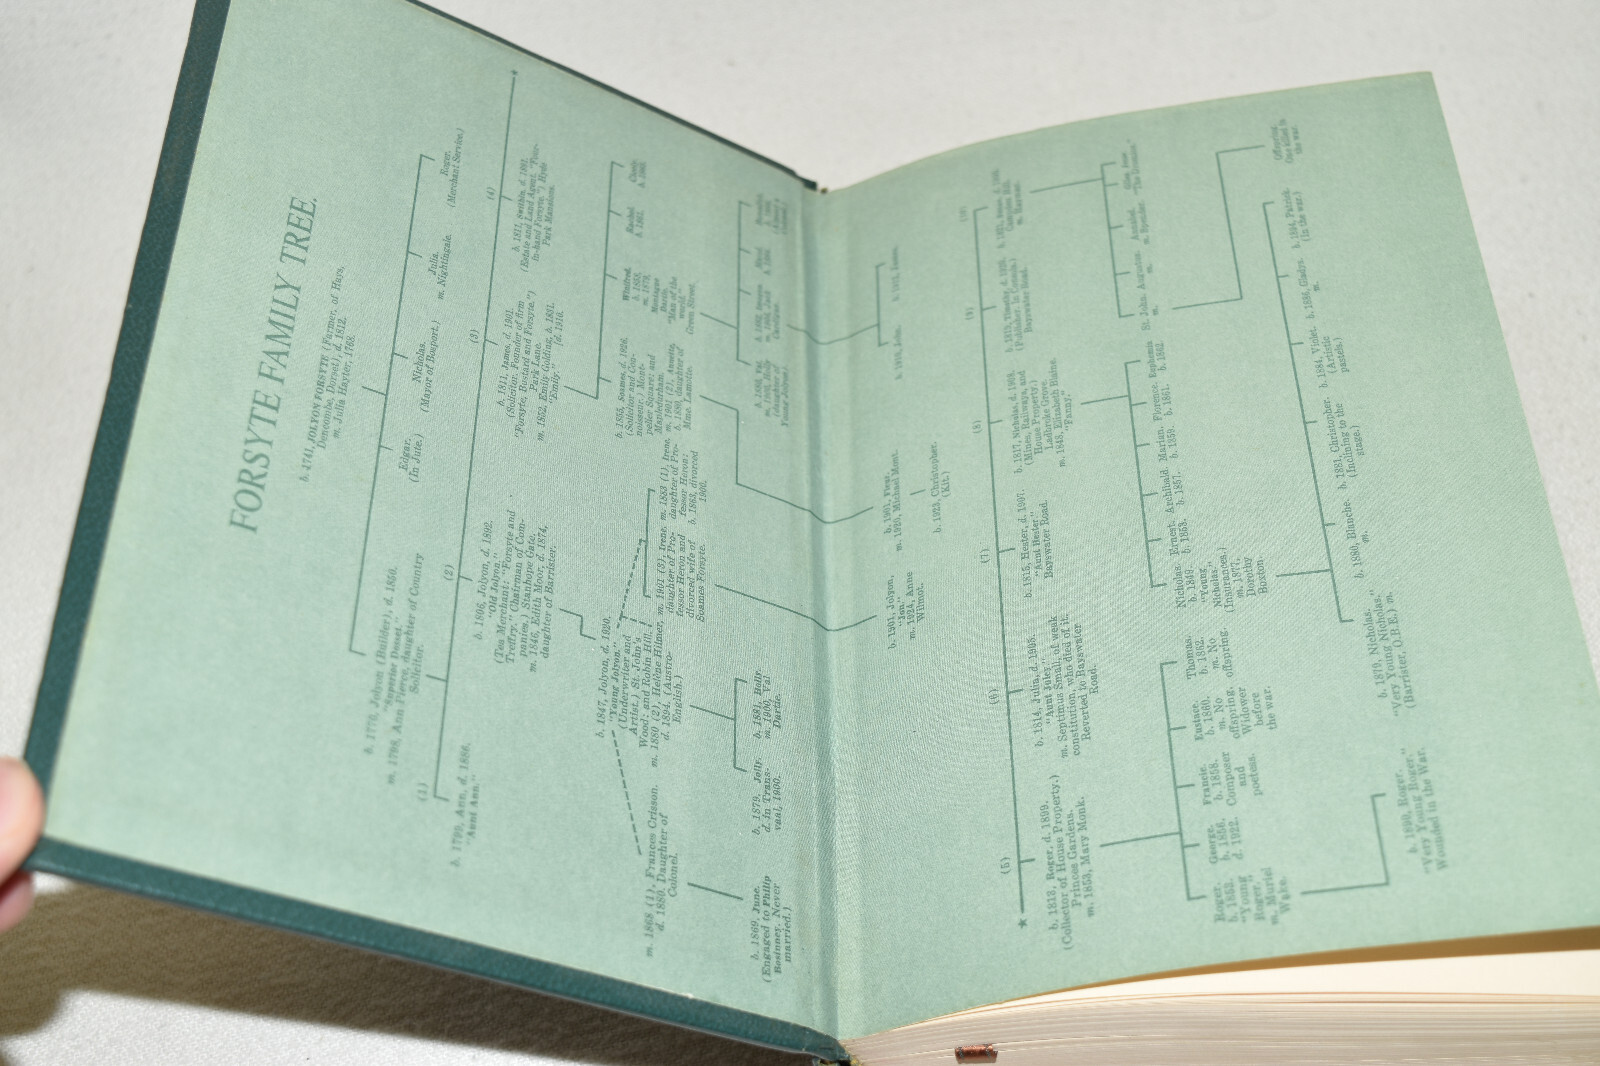 FORSYTE FAMILY TREE.
b. 1741, JOLYON FORSYTE (Farmer, of Hays,
Dencombe, Dorset), d. 1812.
m. Julia Hayter, 1768.
b. 1770, Jolyon (Builder), d. 1850.
"Superior Dosset."
m. 1798, Ann Pierce, daughter of Country
Solicitor.
Edgar.
(In Jute.)
Nicholas.
(Mayor of Bosport.)
Julia.
m. Nightingale.
Roger.
(Merchant Service.)
(1)
b. 1799, Ann, d. 1886.
"Aunt Ann."
(2)
b. 1806, Jolyon, d. 1892.
"Old Jolyon."
(Tea Merchant: "Forsyte and
Treffry," Chairman of Com-
panies.) Stanhope Gate.
m. 1846, Edith Moor, d. 1874,
daughter of Barrister.
(3)
b. 1811, James, d. 1901.
(Solicitor, Founder of firm
"Forsyte, Bustard and Forsyte.")
Park Lane.
m. 1852, Emily Golding, b. 1831.
"Emily." [d. 1910.
(4)
b. 1811, Swithin, d. 1891.
(Estate and Land Agent. "Four-
in-hand Forsyte.") Hyde
Park Mansions.
b. 1847, Jolyon, d. 1920.
"Young Jolyon."
(Underwriter and
Artist.) St. John's
Wood; and Robin Hill.
m. 1868 (1), Frances Crisson.
d. 1880, Daughter of
Colonel.
m. 1880 (2), Helène Hilmer,
d. 1894. (Austro-
English.)
m. 1901 (3), Irene,
daughter of Pro-
fessor Heron and
divorced wife of
Soames Forsyte.
m. 1883 (1), Irene,
daughter of Pro-
fessor Heron;
b. 1863, divorced
1900.
b. 1855, Soames, d. 1926.
(Solicitor and Con-
noisseur.) Mont-
pelier Square; and
Mapledurham.
m. 1901 (2), Annette,
b. 1880, daughter of
Mme. Lamotte.
Winifred,
b. 1858,
m. 1879,
Montague
Dartie.
"Man of the
world."
Green Street.
Rachel.
b. 1861.
Cicely.
b. 1869. June.
(Engaged to Philip
Bosinney. Never
married.)
b. 1879, Jolly.
d. in Trans-
vaal, 1900.
b. 1881, Holly.
m. 1900, Val
Dartie.
b. 1880, Val.
m. 1900, Holly
(daughter of
Young Jolyon.)
b. 1901, Jolyon,
"Jon."
m. 1924, Anne
Wilmot.
b. 1901, Fleur.
m. 1920, Michael Mont.
b. 1923, Christopher.
(Kit.)
★
(5)
b. 1813, Roger, d. 1899.
(Collector of House Property.)
Princes Gardens.
m. 1853, Mary Monk.
(6)
b. 1814, Julia, d. 1905.
"Aunt Juley."
m. Septimus Small, of weak
constitution, who died of it.
Reverted to Bayswater
Road.
(7)
b. 1815, Hester, d. 1907.
"Aunt Hester."
Bayswater Road.
(8)
b. 1817, Nicholas, d. 1908.
(Mines, Railways, and
House Property.)
Ladbroke Grove.
m. 1848, Elizabeth Blaine.
"Fanny."
(9)
b. 1819, Timothy, d. 1920.
(Publisher. In Consols.)
Bayswater Road.
(10)
Roger.
b. 1853.
"Young
Roger,"
m. Muriel
Wake.
George.
b. 1856.
d. 1922.
Francie.
b. 1858.
Composer
and
poetess.
Eustace.
b. 1860.
m. No
offspring.
Widower
before
the war.
Thomas.
b. 1862.
m. No
offspring.
Nicholas.
b. 1849
"Young
Nicholas."
(Insurances.)
m. 1877,
Dorothy
Boxton
Ernest.
b. 1853.
Archibald.
b. 1857.
Marian.
b. 1859.
Florence.
b. 1861.
Euphemia
b. 1862.
St. John.
m.
Augustus.
m.
Annabel.
m. Spender.
b. 1890, Roger.
"Very Young Roger."
Wounded in the War.
b. 1879, Nicholas.
"Very Young Nicholas."
(Barrister, O.B.E.) m.
b. 1880, Blanche.
m.
b. 1881, Christopher.
(Inclining to the
stage.)
b. 1884, Violet.
(Artistic
pastels.)
b. 1886, Gladys.
m.
b. 1894, Patrick.
(In the war.)
Offspring.
One killed in
the war.